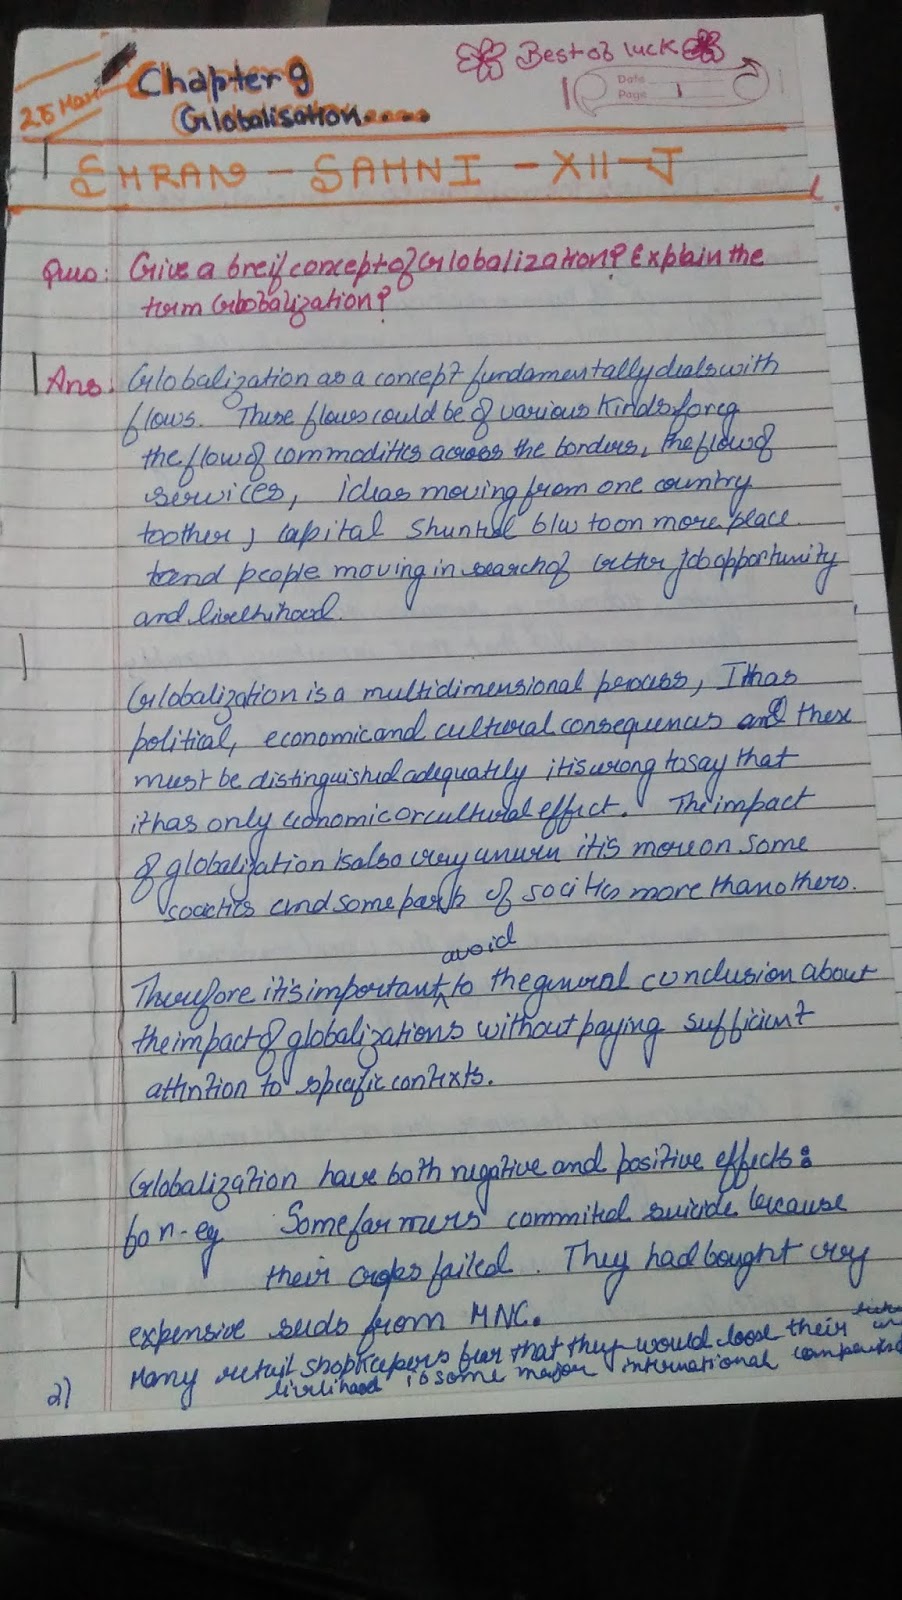 Best of luck
25 Mar
Chapter 9
Date
Page 1
Globalisation.....
SMRAN - SAHNI - XII-J
Ques: Give a breif concept of Globalization? Explain the
term Globalization?
Ans: Globalization as a concept fundamentally deals with
flows. These flows could be of various kinds for eg
the flow of commodities across the borders, the flow of
services, ideas moving from one country
to other, capital shunted b/w to on more place
and people moving in search of better job opportunity
and livelihood.
Globalization is a multidimensional process, It has
political, economic and cultural consequences and these
must be distinguished adequately it is wrong to say that
it has only economic or cultural effect. The impact
of globalization is also very uneven it is more on some
societies and some parts of socities more than others.
avoid
Therefore it is important to the general conclusion about
the impact of globalizations without paying sufficient
attention to specific contexts.
Globalization have both negative and positive effects:
for n-eg Some farmers commited suicide because
their crops failed. They had bought very
expensive seeds from MNC.
2) Many retail shopkeepers fear that they would loose their
livelihood if some major international companies